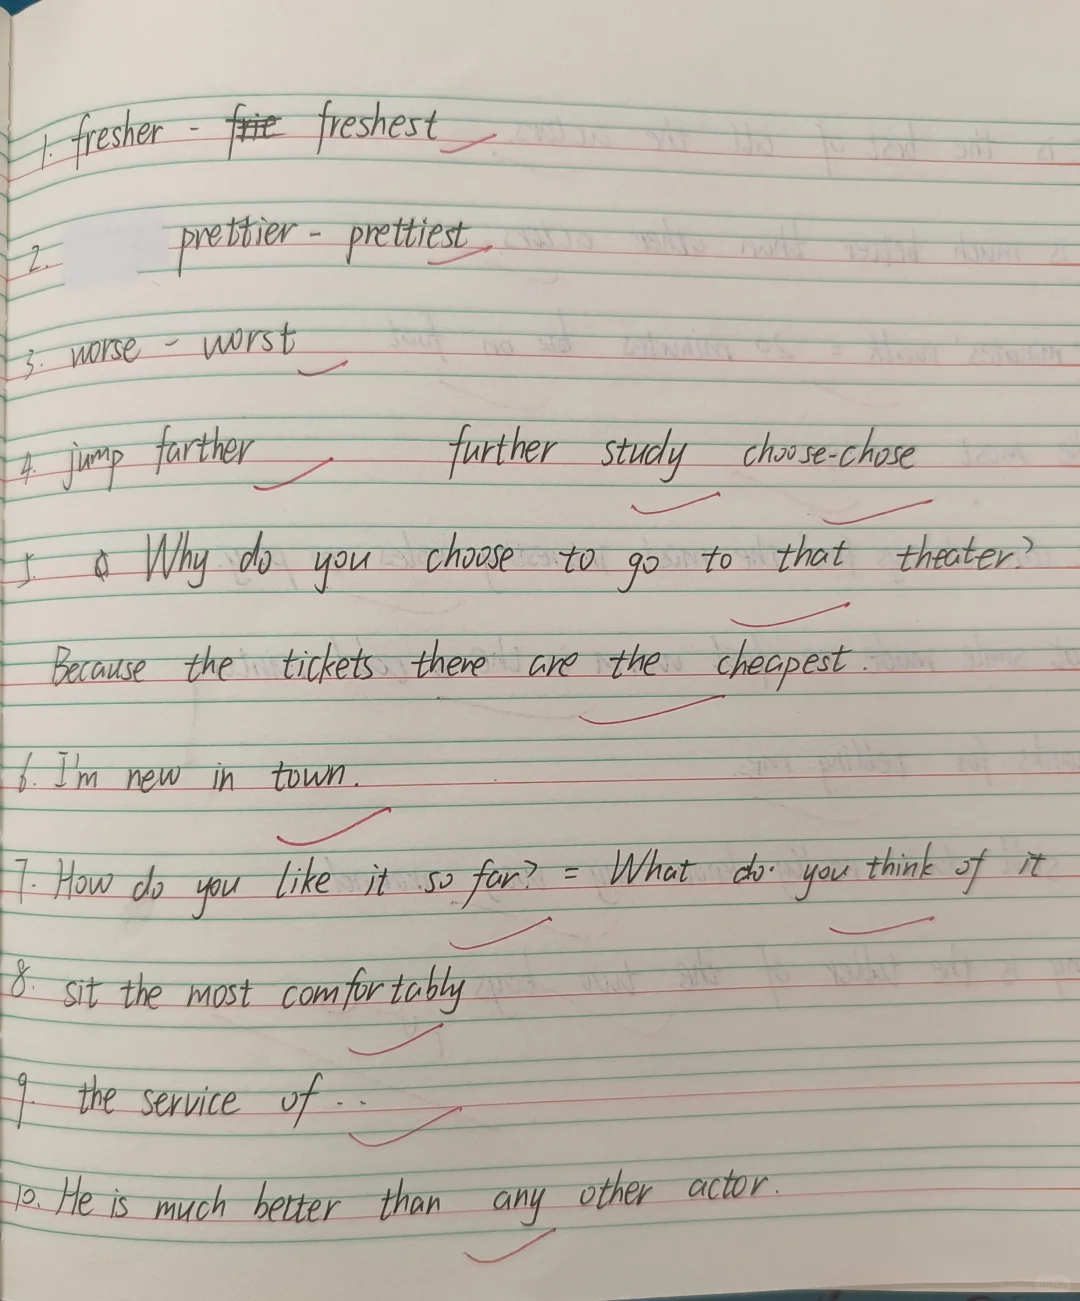 1. fresher - frie freshest
2. prettier - prettiest
3. worse - worst
4. jump farther further study choose-chose
5. Why do you choose to go to that theater?
Because the tickets there are the cheapest.
6. I'm new in town.
7. How do you like it so far? = What do you think of it
8. sit the most comfortably
9. the service of ...
10. He is much better than any other actor.